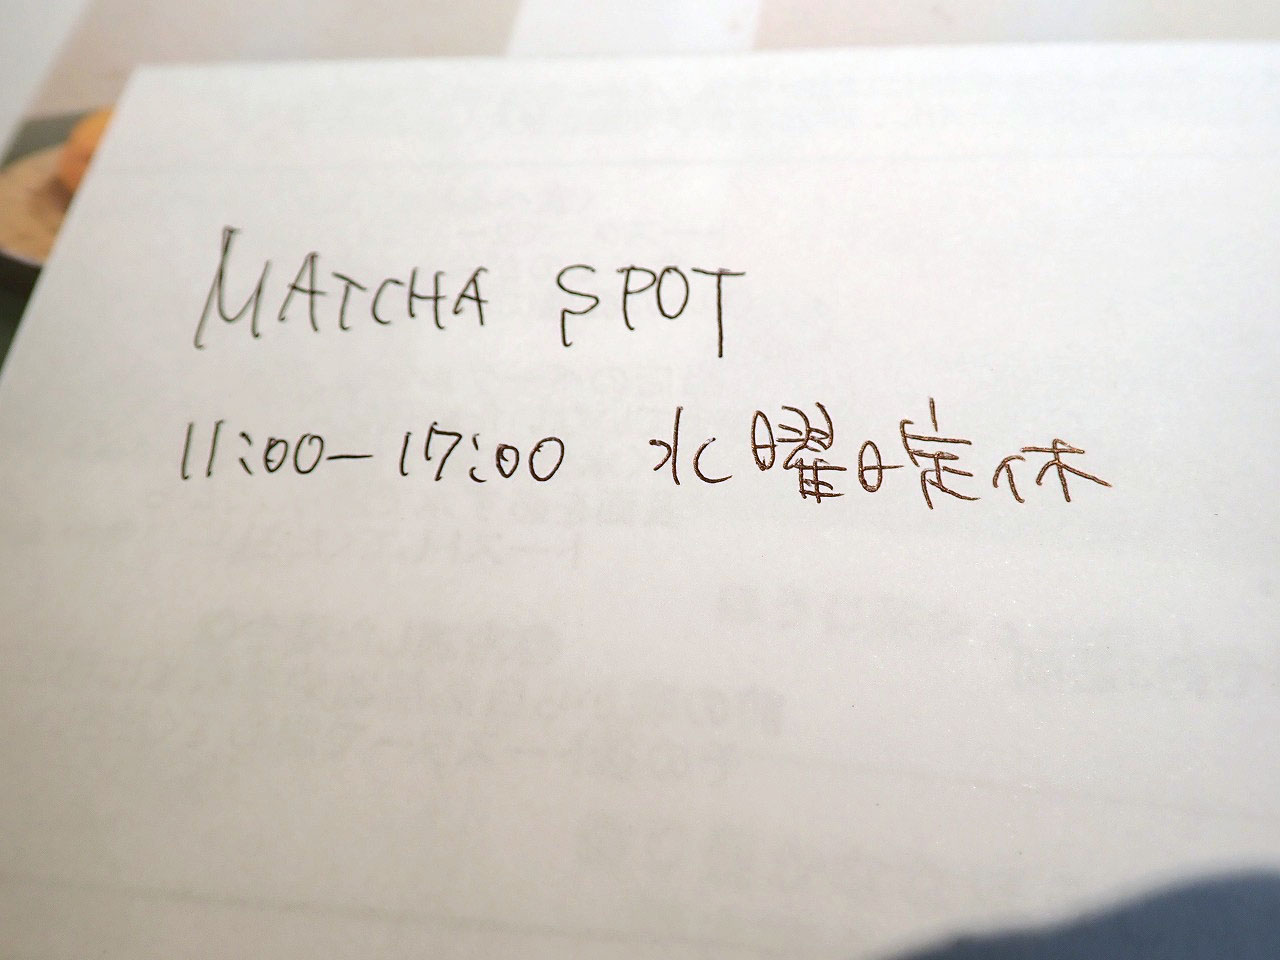 MATCHA SPOT
11:00-17:00 水曜日定休